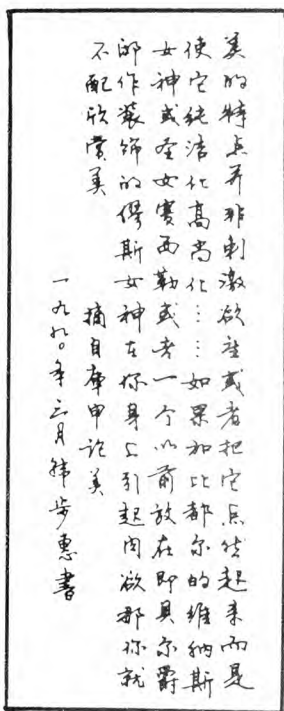 美的特点并非刺激欲望或者把它点燃起来而是
使它纯洁化高尚化……如果加比都尔的维纳斯
女神或圣女赛西勒或者一个以前放在即具尔爵
邸作装饰的缪斯女神在你身上引起肉欲那你就
不配欣赏美
摘自库申论美
一九九〇年三月韩步惠书